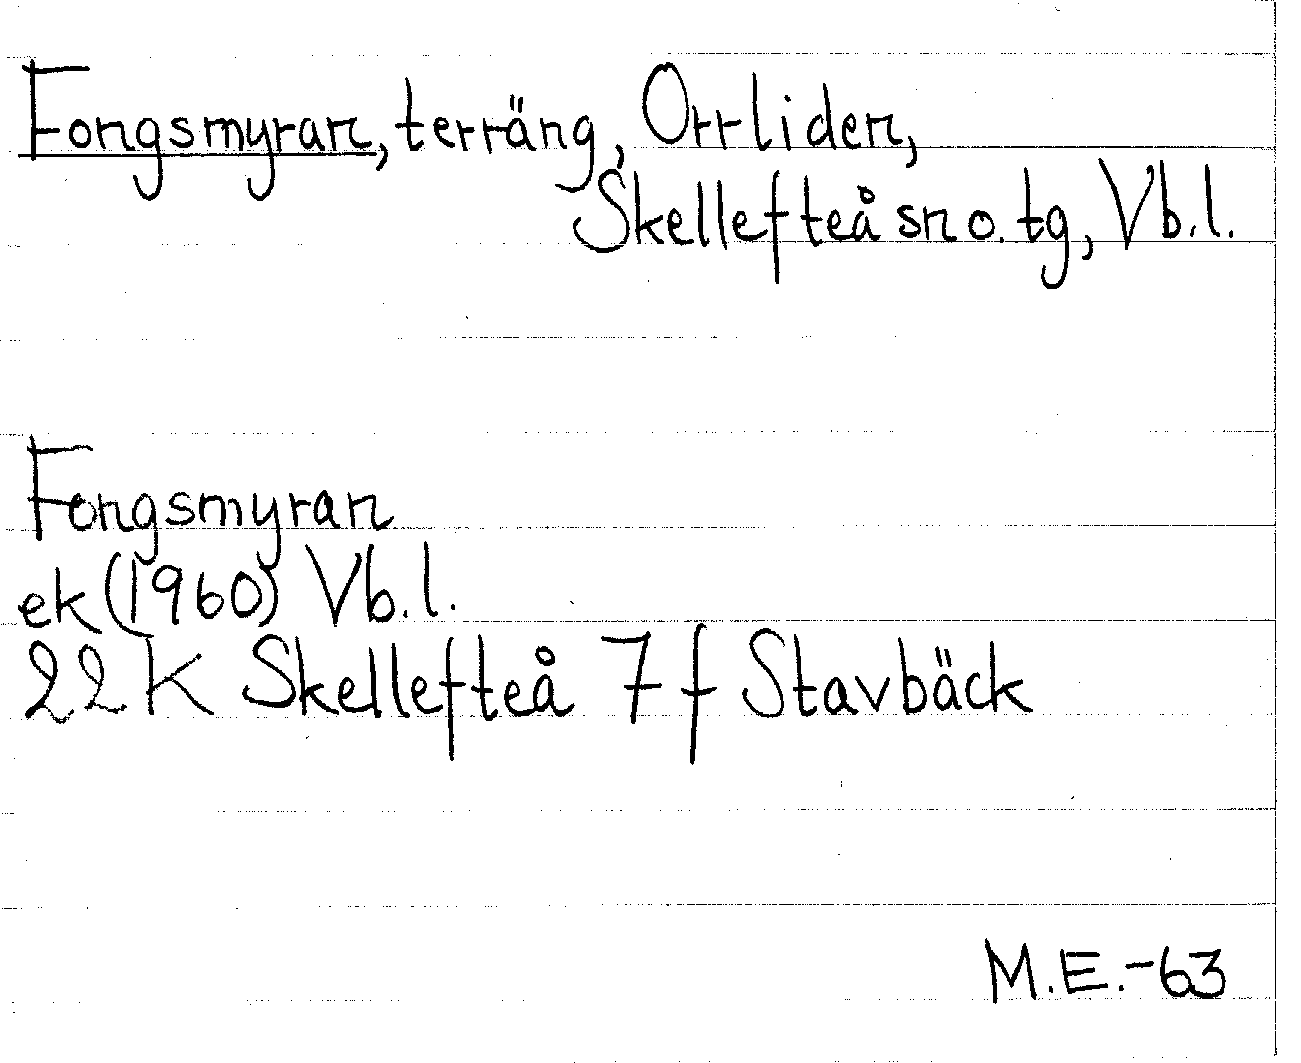 Fongsmyran, terräng, Orrliden,
Skellefteå sn o. tg, Vb.l.
Fongsmyran
ek (1960) Vb.l.
22 K Skellefteå 7 f Stavbäck
M.E.-63